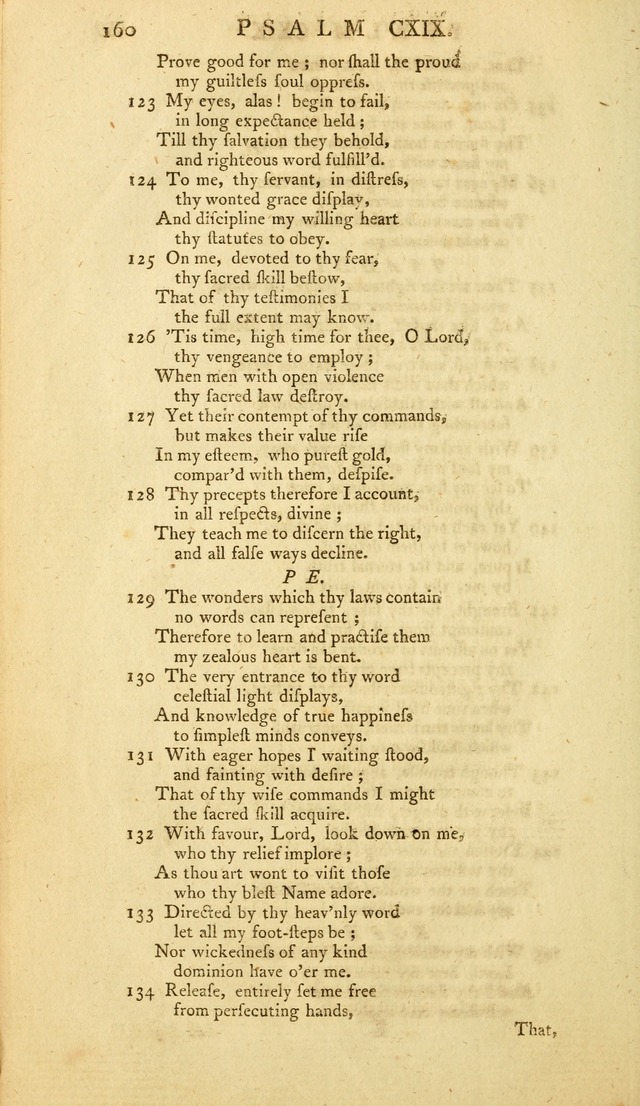 160 PSALM CXIX.
Prove good for me ; nor ſhall the proud
my guiltleſs ſoul oppreſs.
123 My eyes, alas ! begin to fail,
in long expectance held ;
Till thy ſalvation they behold,
and righteous word fulfill'd.
124 To me, thy ſervant, in diſtreſs,
thy wonted grace diſplay,
And diſcipline my willing heart
thy ſtatutes to obey.
125 On me, devoted to thy fear,
thy ſacred ſkill beſtow,
That of thy teſtimonies I
the full extent may know.
126 'Tis time, high time for thee, O Lord,
thy vengeance to employ ;
When men with open violence
thy ſacred law deſtroy.
127 Yet their contempt of thy commands,
but makes their value riſe
In my eſteem, who pureſt gold,
compar'd with them, deſpiſe.
128 Thy precepts therefore I account,
in all reſpects, divine ;
They teach me to diſcern the right,
and all falſe ways decline.
P E.
129 The wonders which thy laws contain
no words can repreſent ;
Therefore to learn and practiſe them
my zealous heart is bent.
130 The very entrance to thy word
celeſtial light diſplays,
And knowledge of true happineſs
to ſimpleſt minds conveys.
131 With eager hopes I waiting ſtood,
and fainting with deſire ;
That of thy wiſe commands I might
the ſacred ſkill acquire.
132 With favour, Lord, look down on me,
who thy relief implore ;
As thou art wont to viſit thoſe
who thy bleſt Name adore.
133 Directed by thy heav'nly word
let all my foot-ſteps be ;
Nor wickedneſs of any kind
dominion have o'er me.
134 Releaſe, entirely ſet me free
from perſecuting hands,
That,